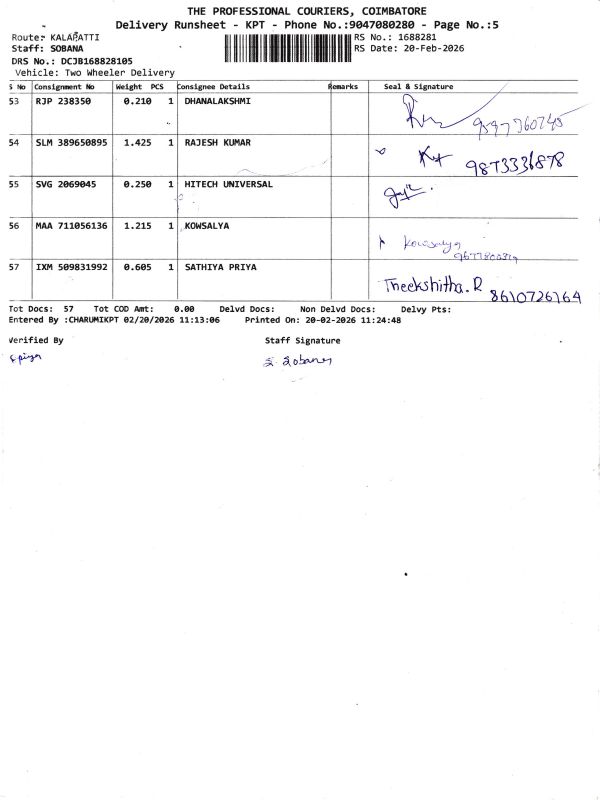 THE PROFESSIONAL COURIERS, COIMBATORE
Delivery Runsheet - KPT - Phone No.:9047080280 - Page No.:5
Route: KALAPATTI
RS No.: 1688281
Staff: SOBANA
RS Date: 20-Feb-2026
DRS No.: DCJB168828105
Vehicle: Two Wheeler Delivery
S No Consignment No Weight PCS Consignee Details Remarks Seal & Signature
53 RJP 238350 0.210 1 DHANALAKSHMI
54 SLM 389650895 1.425 1 RAJESH KUMAR
9873336878
55 SVG 2069045 0.250 1 HITECH UNIVERSAL
56 MAA 711056136 1.215 1 KOWSALYA Kowsalya
57 IXM 509831992 0.605 1 SATHIYA PRIYA Theekshitha.R
8610726164
Tot Docs: 57 Tot COD Amt: 0.00 Delvd Docs: Non Delvd Docs: Delvy Pts:
Entered By :CHARUMIKPT 02/20/2026 11:13:06 Printed On: 20-02-2026 11:24:48
Verified By Staff Signature
S. Sobana